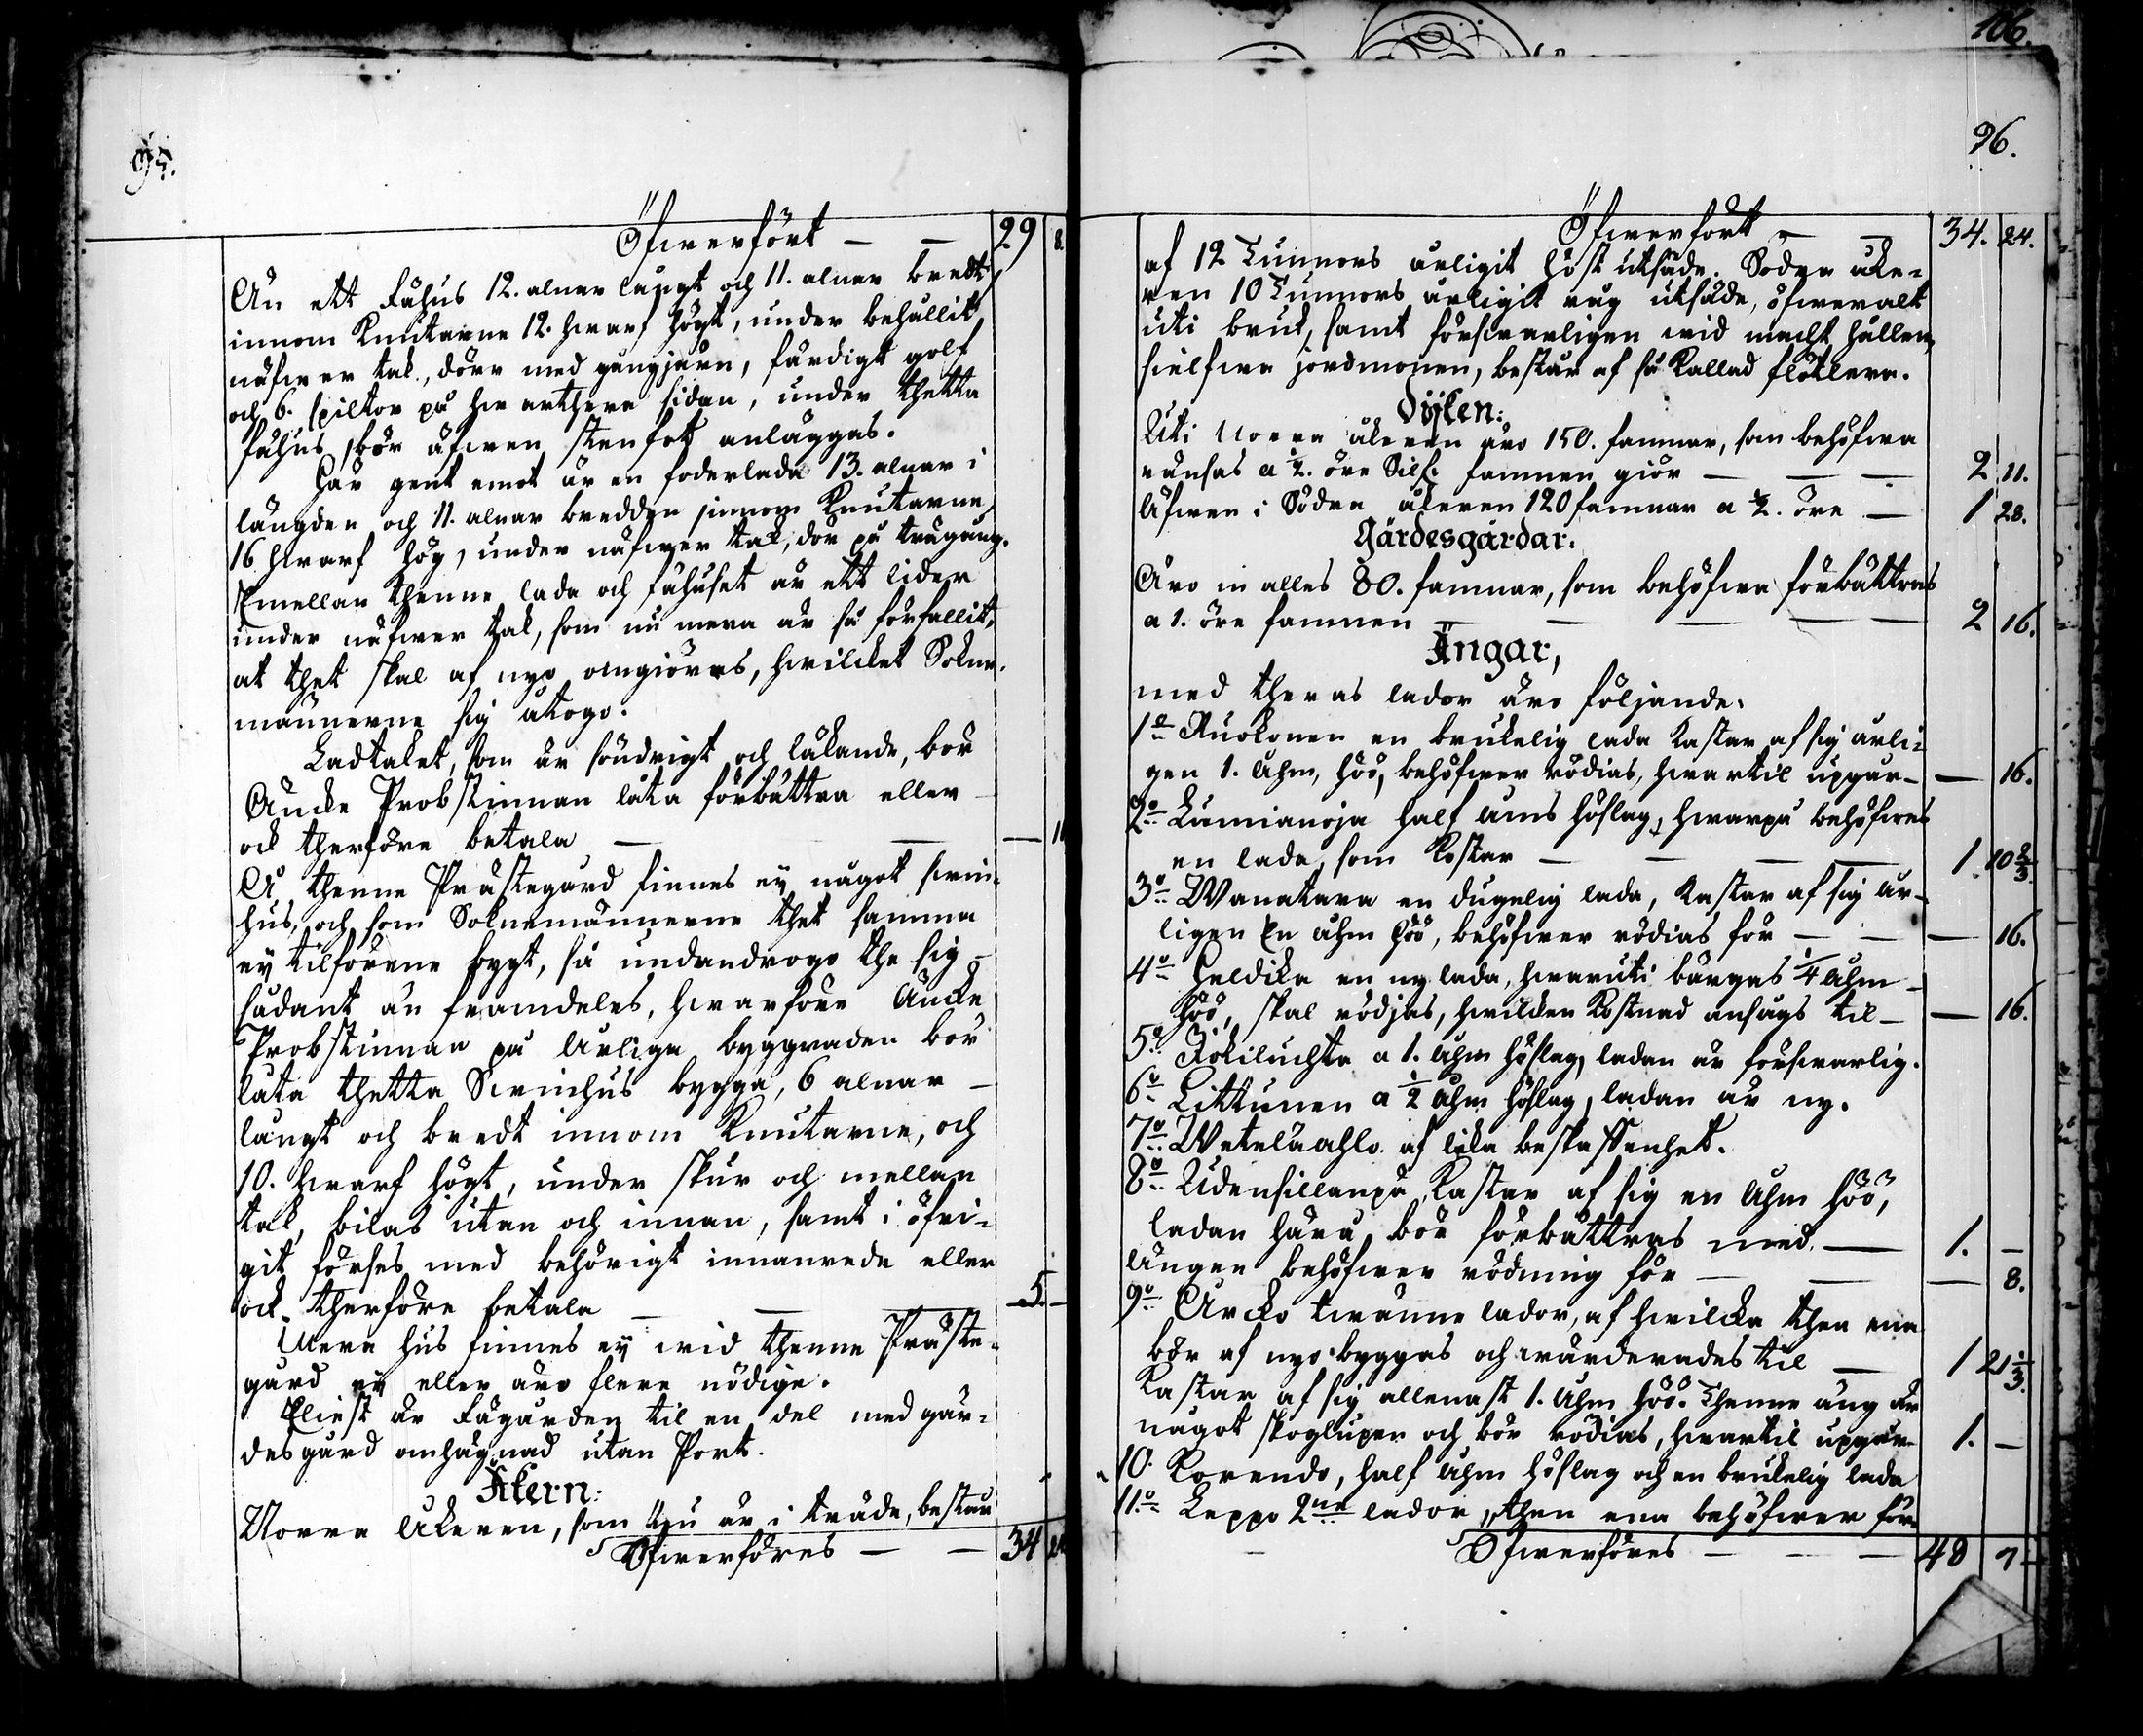 95.
Öfwerfört — — 29 8.
Än ett Fähus 12. alnar långt och 11. alnar bredt
innom Knutarne 12. hwarf högt, under behållit
näfwer tak, dörr med gångjärn, färdigt golf
och 6. spiltor på hwarthera sidan, under thetta
fähus bör äfwen stenfot anläggas.
Här gent emot är en foderlada 13. alnar i
längden och 11. alnar bredden innom Knutarne,
16 hwarf hög, under näfwer tak, dör på trägång.
Emellan thenne lada och fähuset är ett lider
under näfwer tak, som nu mera är så förfallit,
at thet skal af nyo omgiöras, hwilcket Sokne-
männerne sig åtogo.
Ladtaket, som är söndrigt och läkande, bör
Äncke Probstinnan låta förbättra eller
ock therföre betala — —
Å thenne Prästegård finnes ey något swin-
hus, och som Soknemännerne thet samma
ey tilförene bygt, så undandrogo the sig
sådant än framdeles, hwarföre Äncke
Probstinnan på årliga byggnaden bör
låta thetta Swinhus bygga, 6 alnar
långt och bredt innom Knutarne, och
10. hwarf högt, under skur och mellan
tak, bilas utan och innan, samt i öfri-
git förses med behörigt innanrede eller
ock therföre betala — — 5. —
Mera hus finnes ey wid thenne Präste-
gård ey eller äro flere nödige.
Eliest är Fägården til en del med gär-
desgård omhägnad utan Port.
Åkern:
Norra Åkeren, som nu är i träde, består
Öfwerföres — — 34 24
106.
96.
Öfwerfört — — 34. 24.
af 12 Tunnors årligit höst utsäde. Södra åke-
ren 10 Tunnors årligit rug utsäde, öfweralt
uti bruk, samt förswarligen wid macht hållen,
sielfwa jordmonen, består af så kallad flötlera.
Dijken:
Uti Norra åkeren äro 150. famnar, som behöfwa
ränsas a ½. öre Silf: famnen giör — — 2 11.
Äfwen i Södra åkeren 120 famnar a ½. öre — 1 28.
Gärdesgårdar:
Äro in alles 80. famnar, som behöfwa förbättras
a 1. öre famnen — — — — 2 16.
Ängar,
med theras lador äro följande.
1o Ruokonen en brukelig lada kastar af sig årli-
gen 1. åhm, höö, behöfwer rödias, hwartil upgår — — 16.
2o Lumianoja half åms höslag, hwarpå behöfwes
en lada, som kostar — — — 1. 10⅔.
3o Wanatara en dugelig lada, kastar af sig år-
ligen En åhm höö, behöfwer rödias för — — — 16.
4o Heldika en ny lada, hwaruti bärgas ¼ åhm
höö, skal rödjas, hwilcken kostnad ansågs til — — 16.
5o Jokiluchta a 1. åhm höslag, ladan är förswarlig.
6o Littunen a ½ åhm höslag, ladan är ny.
7o Wetelåahlo af lika beskaffenhet.
8o Udensillanpä, kastar af sig en åhm höö,
ladan härå bör förbättras med — 1. —
ängen behöfwer rödning för — — — 8.
9o Arcko twänne lador, af hwilcka then ena
bör af nyo byggas och wärderades til — 1 21⅓.
kastar af sig allenast 1. åhm höö. Thenne äng är
något skoglupen och bör rödias, hwartil upgår 1. —
10. Korendo, half åhm höslag och en brukelig lada
11.o Leppo 2ne lador, then ena behöfwer för-
Öfwerföres — — — 48 7